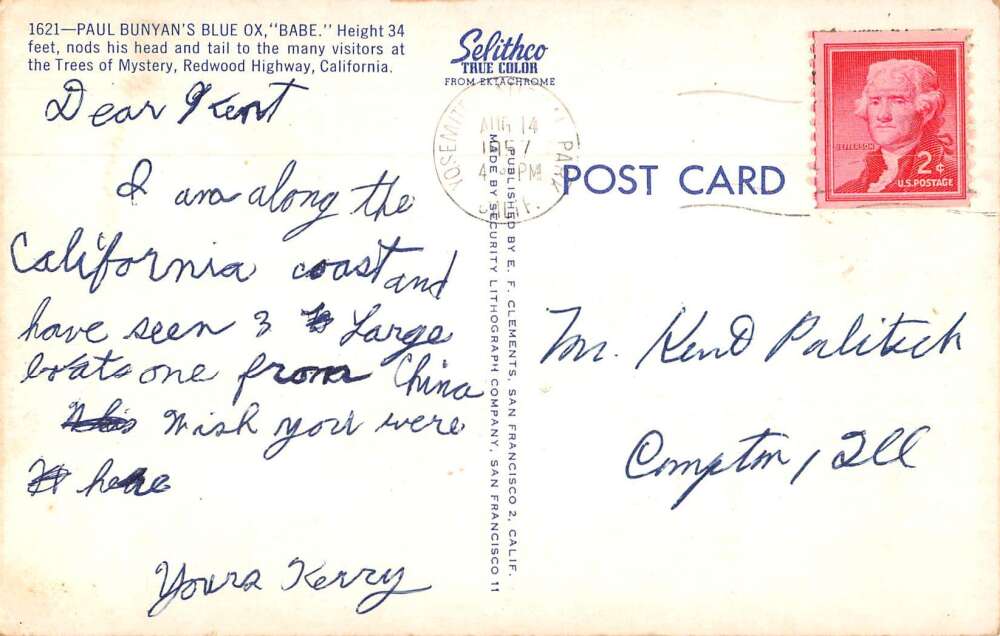 1621—PAUL BUNYAN'S BLUE OX, "BABE." Height 34
feet, nods his head and tail to the many visitors at
the Trees of Mystery, Redwood Highway, California.
Selithco
TRUE COLOR
FROM EKTACHROME
Dear Kent
I am along the
California coast and
have seen 3 Large
boats one from China
Wish you were
here
Yours Kerry
PUBLISHED BY E. F. CLEMENTS, SAN FRANCISCO 2, CALIF.
MADE BY SECURITY LITHOGRAPH COMPANY, SAN FRANCISCO 11
YOSEMITE PARK
AUG 14
1957
PM
CALIF.
POST CARD
JEFFERSON
2¢
U.S. POSTAGE
Mr. Kent
Compton, Ill